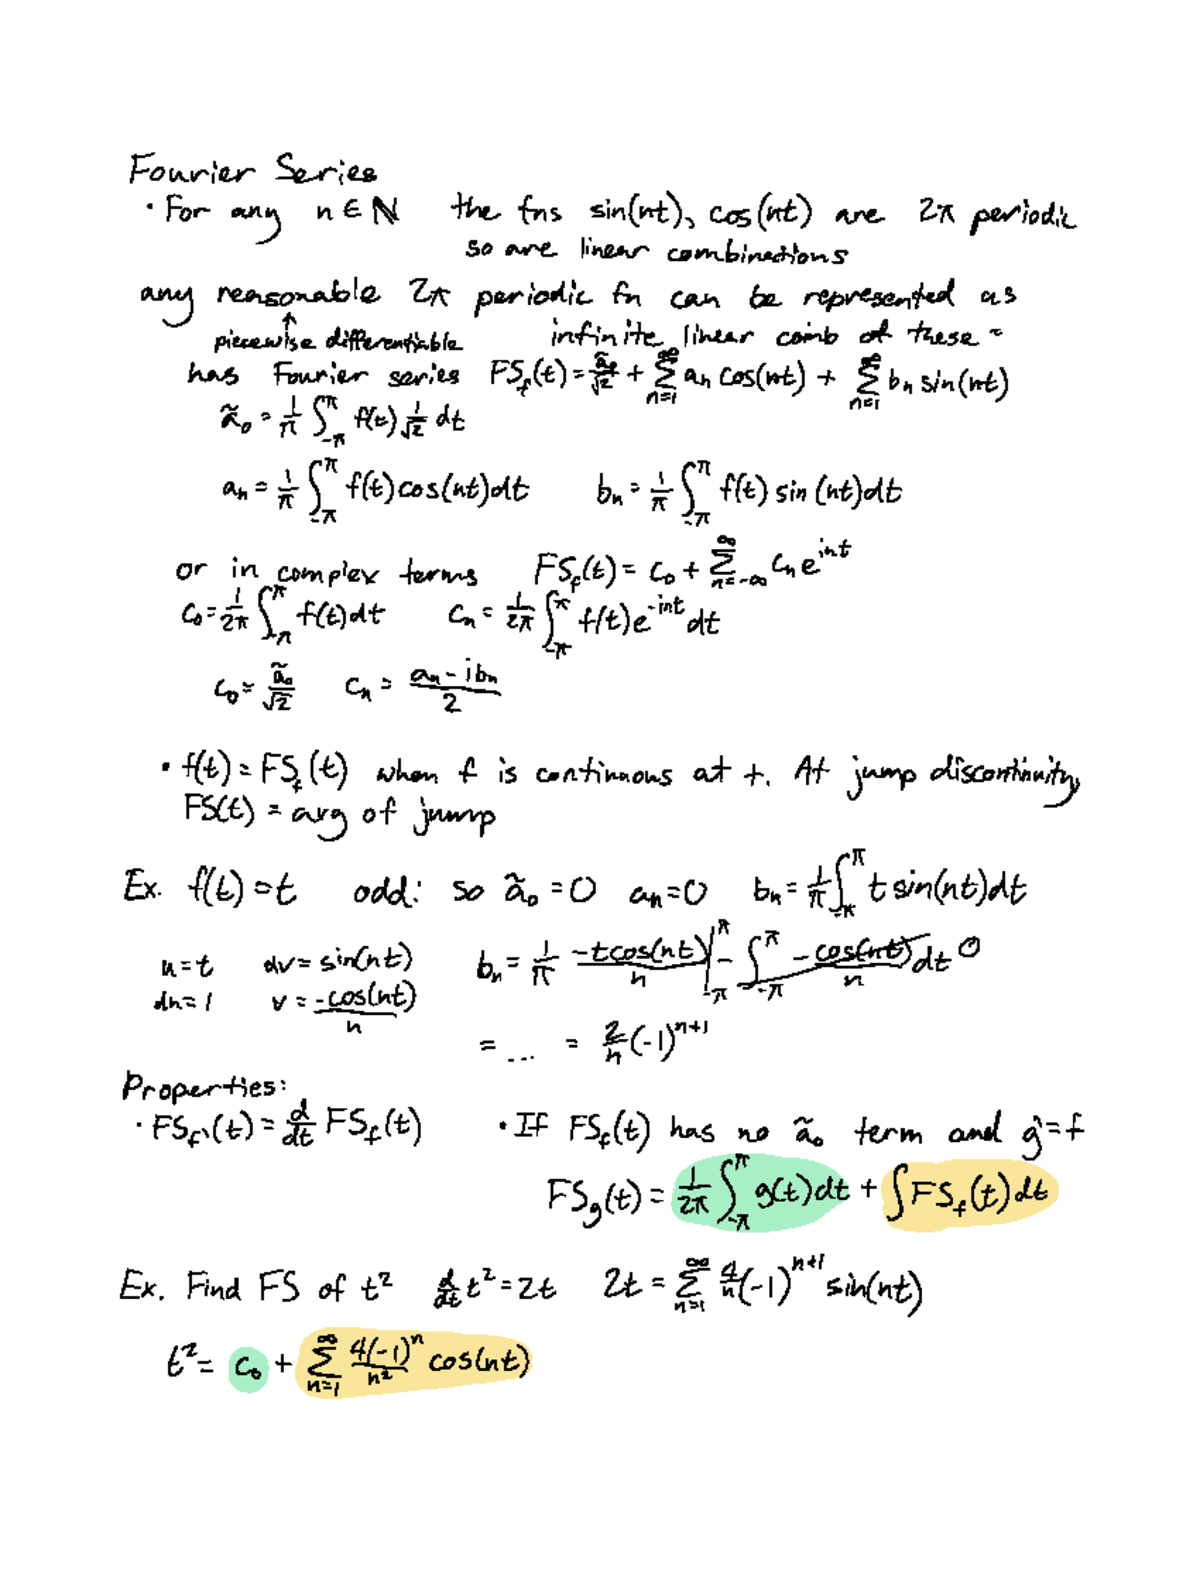 Fourier Series
• For any n ∈ ℕ the fns sin(nt), cos(nt) are 2π periodic
so are linear combinations
any reasonable 2π periodic fn can be represented as
↑
piecewise differentiable infinite linear comb of these -
has Fourier series FS_f(t) = ã₀/√2 + ∑_{n=1}^{∞} aₙ cos(nt) + ∑_{n=1}^{∞} bₙ sin(nt)
ã₀ = 1/π ∫_{-π}^{π} f(t) 1/√2 dt
aₙ = 1/π ∫_{-π}^{π} f(t) cos(nt) dt bₙ = 1/π ∫_{-π}^{π} f(t) sin(nt) dt
or in complex terms FS_f(t) = c₀ + ∑_{n=-∞}^{∞} cₙ e^{int}
c₀ = 1/2π ∫_{-π}^{π} f(t) dt cₙ = 1/2π ∫_{-π}^{π} f(t) e^{-int} dt
c₀ = ã₀/√2 cₙ = (aₙ - ibₙ)/2
• f(t) = FS_f(t) when f is continuous at t. At jump discontinuity,
FS(t) = avg of jump
Ex. f(t) = t odd: so ã₀ = 0 aₙ = 0 bₙ = 1/π ∫_{-π}^{π} t sin(nt) dt
u = t dv = sin(nt) bₙ = 1/π -t cos(nt)/n |_{-π}^{π} - ∫_{-π}^{π} -cos(nt)/n dt 0
du = 1 v = -cos(nt)/n
= ... = 2/n (-1)^{n+1}
Properties:
• FS_{f'}(t) = d/dt FS_f(t) • If FS_f(t) has no ã₀ term and g' = f
FS_g(t) = 1/2π ∫_{-π}^{π} g(t) dt + ∫ FS_f(t) dt
Ex. Find FS of t² d/dt t² = 2t 2t = ∑_{n=1}^{∞} 4/n (-1)^{n+1} sin(nt)
t² = c₀ + ∑_{n=1}^{∞} 4(-1)^n/n² cos(nt)